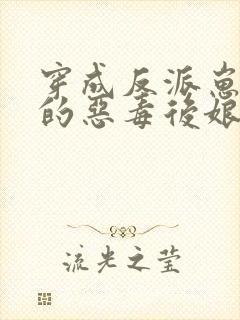 穿成反派崽
的惡毒後娘
流光之莹